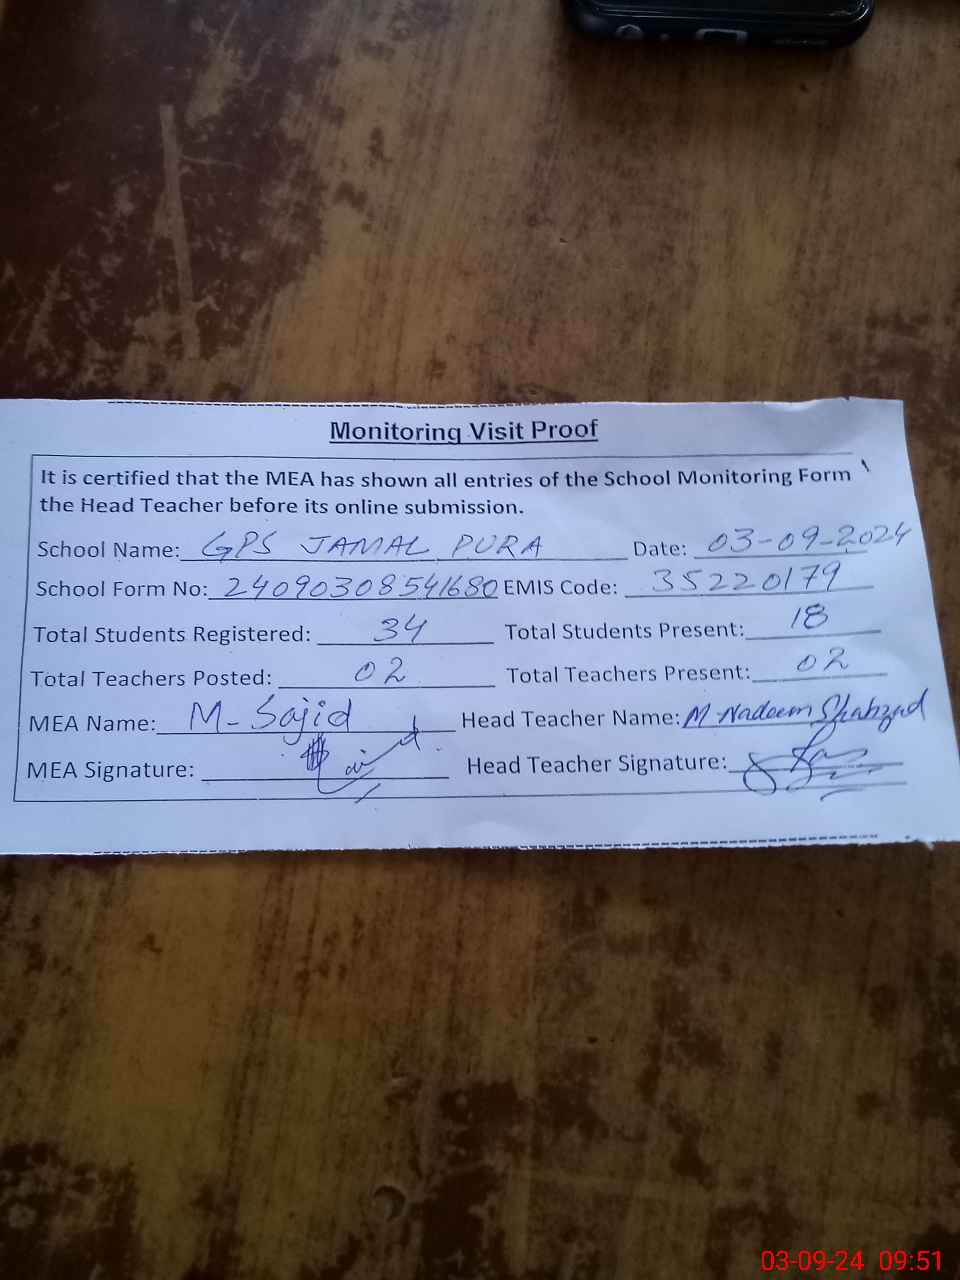 Monitoring Visit Proof
It is certified that the MEA has shown all entries of the School Monitoring Form
the Head Teacher before its online submission.
School Name: GPS JAMAL PURA Date: 03-09-2024
School Form No: 24090308541680 EMIS Code: 35220179
Total Students Registered: 34 Total Students Present: 18
Total Teachers Posted: 02 Total Teachers Present: 02
MEA Name: M-Sajid Head Teacher Name: M-Nadeem Shahzad
MEA Signature: Head Teacher Signature:
03-09-24 09:51